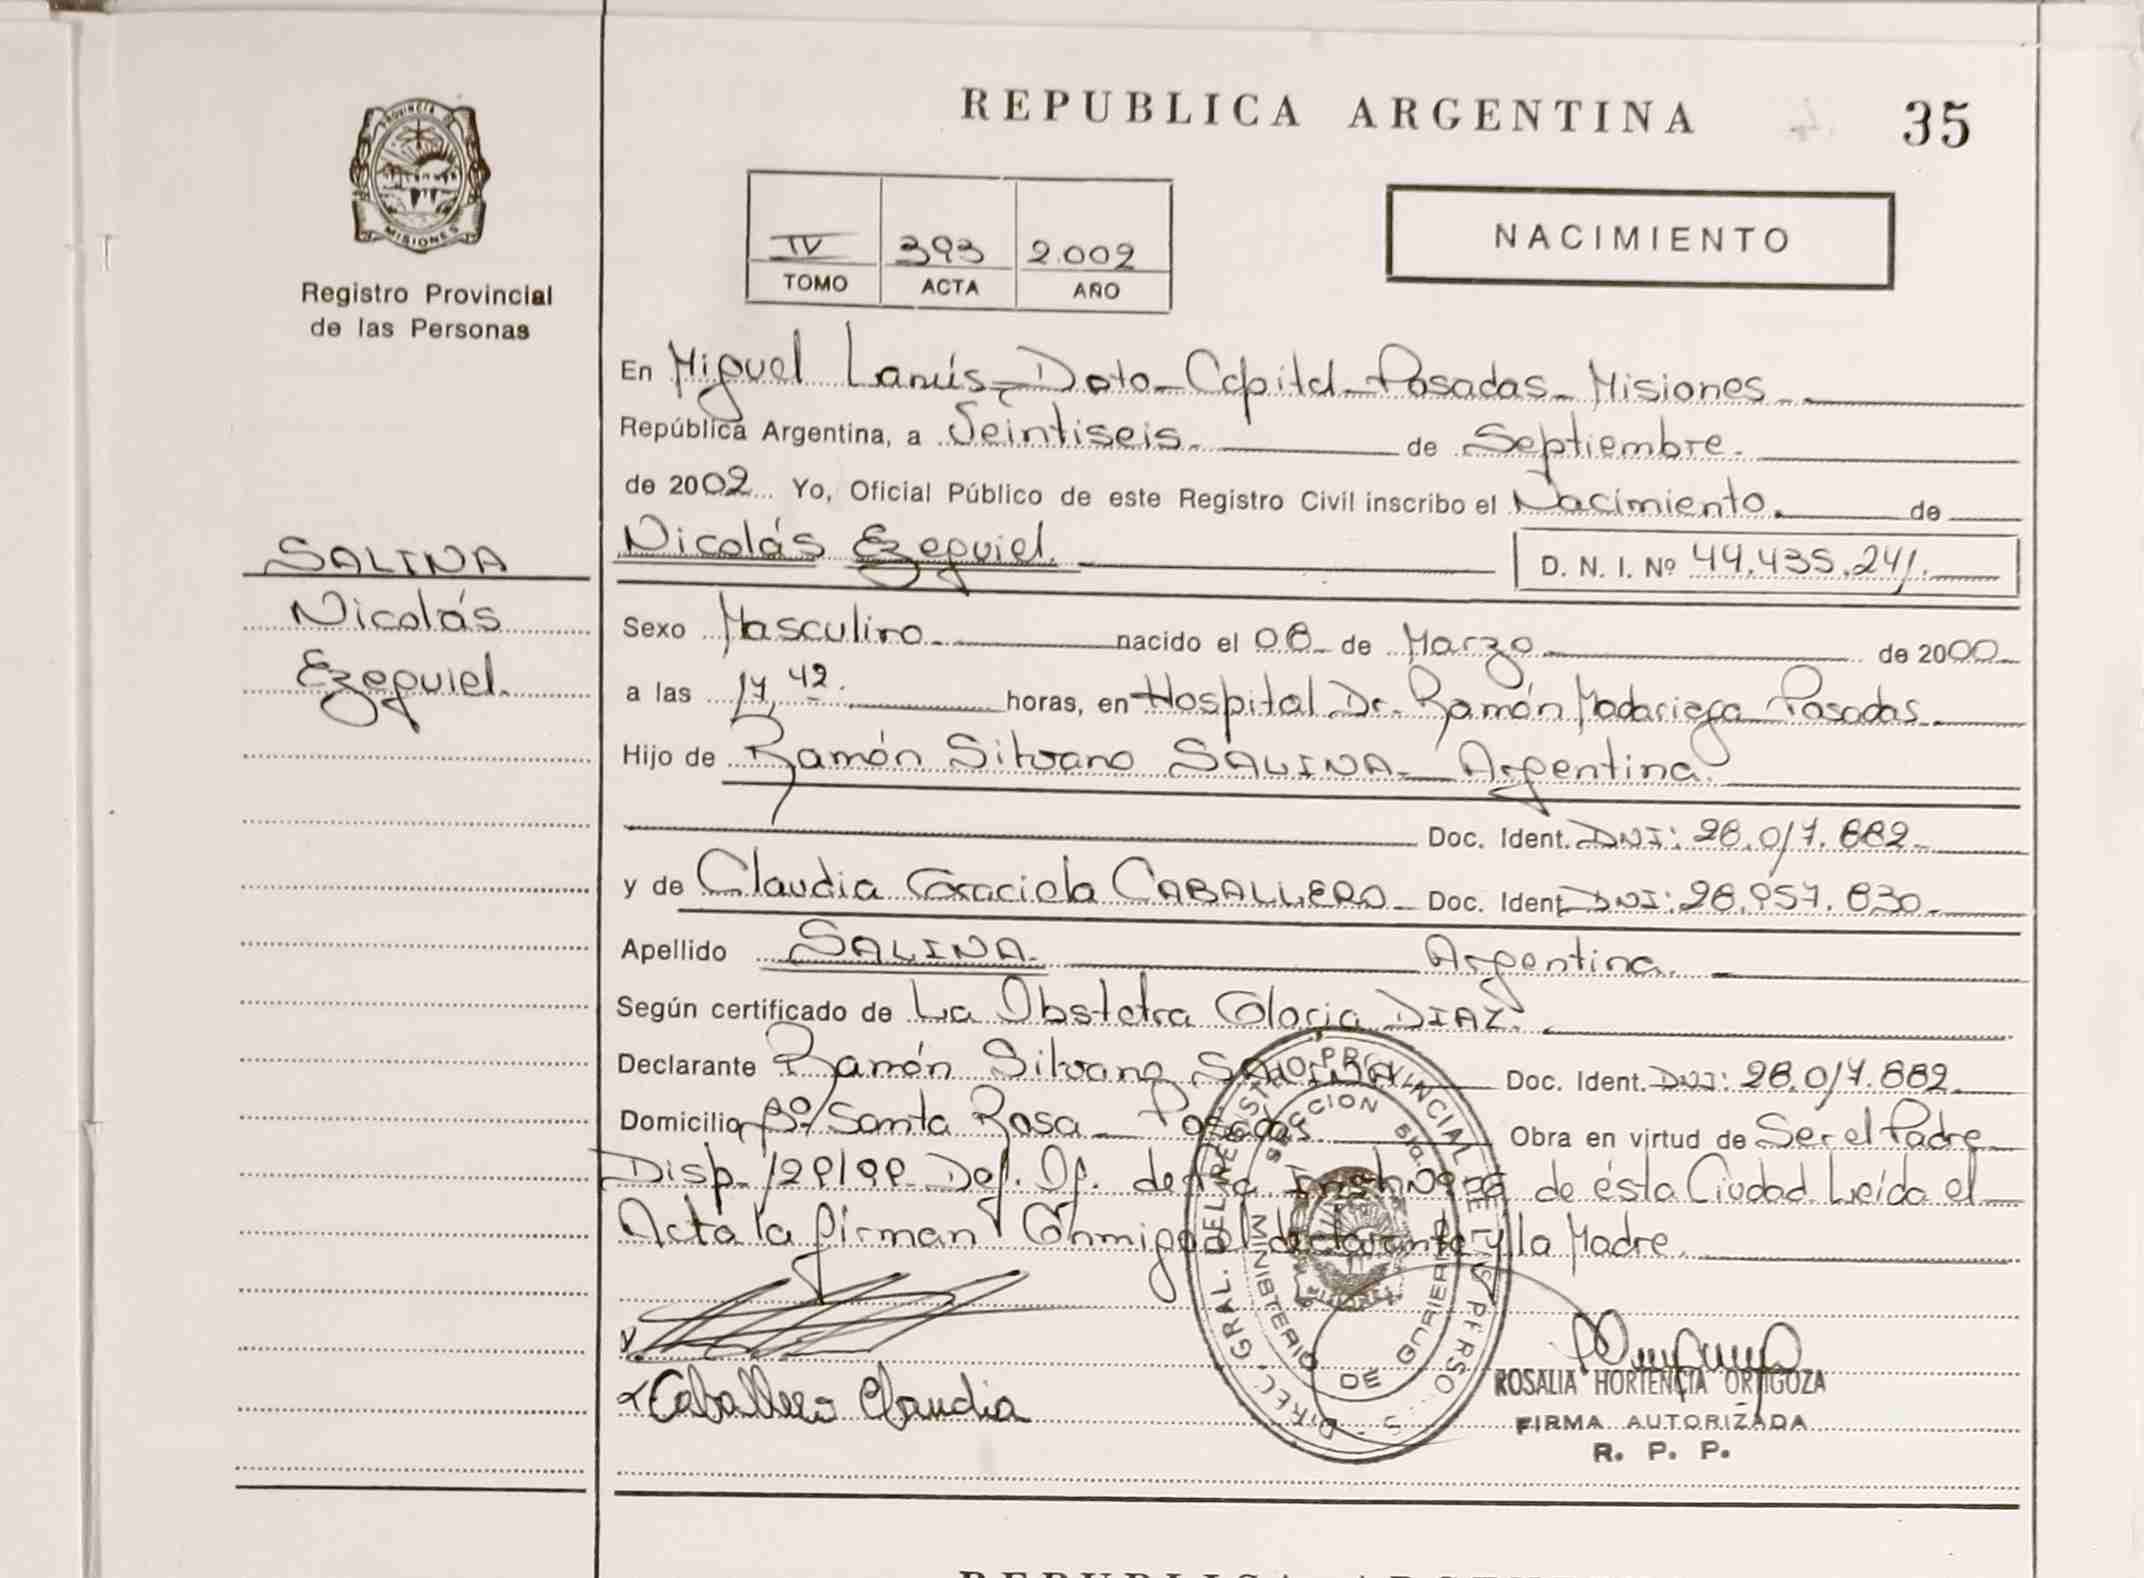 REPUBLICA ARGENTINA
35
PROVINCIA DE
MISIONES
Registro Provincial
de las Personas
IV 393 2.002
TOMO ACTA AÑO
NACIMIENTO
En Miguel Lanús- Dpto- Capital- Posadas- Misiones
República Argentina, a Veintiseis de Septiembre.
de 2002 Yo, Oficial Público de este Registro Civil inscribo el Nacimiento. de
Nicolás Ezequiel. D. N. I. Nº 44.435.241.
SALINA
Nicolás
Ezequiel.
Sexo Masculino nacido el 08 de Marzo de 2000
a las 17,42. horas, en Hospital Dr. Ramón Madariaga Posadas
Hijo de Ramón Silvano SALINA- Argentina.
Doc. Ident. DNI: 28.017.882-
y de Claudia Graciela CABALLERO- Doc. Ident DNI: 28.957.830-
Apellido SALINA- Argentina.
Según certificado de La Obstetra Gloria DIAZ.
Declarante Ramón Silvano SALINA Doc. Ident. DNI: 28.017.882-
Domicilio Bº/ Santa Rosa- Posadas Obra en virtud de Ser el Padre-
Disp- 129/99- de ésta Ciudad Leída el
Acta la firman Conmigo el declarante y la Madre.
Caballero Claudia
DIREC. GRAL. DEL REGISTRO PROVINCIAL DE LAS PERSONAS
SECCION 5ta.
MINISTERIO DE GOBIERNO
MISIONES
ROSALIA HORTENCIA ORTIGOZA
FIRMA AUTORIZADA
R. P. P.